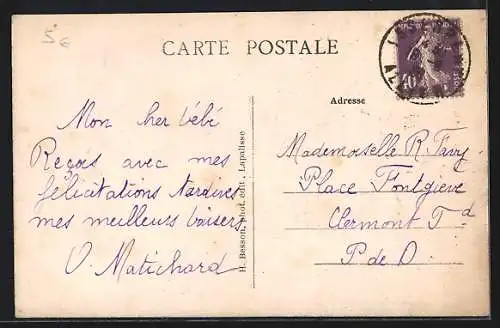 5 €
CARTE POSTALE
40
Adresse
Mon cher bébé
Reçois avec mes
félicitations tardives
mes meilleurs baisers
O. Matichard
H. Besson, phot. édit., Lapalisse
Mademoiselle R.
Place Fontgieve
Clermont Fd
P de D.